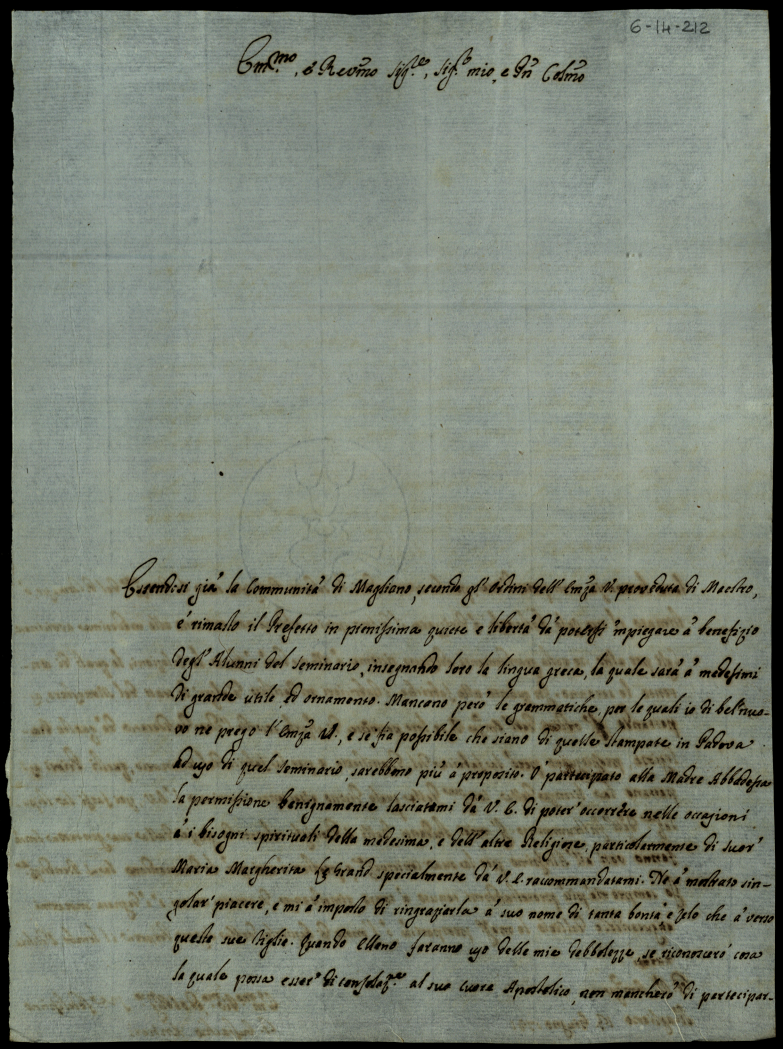 6-14-212
Em.mo, e Revmo Sig.re, Sig.r mio, e Prñ Colmo
Essendosi già la Communità di Magliano, secondo gl' ordini dell' Emza V. proveduta di Maestro,
è rimasto il Prefetto in pienissima quiete e libertà dà potersi impiegare à benefizio
degl' Alunni del seminario, insegnando loro la lingua greca, la quale sarà à medesimi
di grande utile, ed ornamento. Mancono però le grammatiche, per le quali io di bel' nuo-
vo ne prego l' Emza V., e se sia possibile che siano di quelle stampate in Padova
ad uso di quel seminario, sarebbono più à proposito. Ò partecipato alla Madre Abbadessa
la permissione benignamente lasciatami dà V. E. di poter' occorrere nelle occasioni
à i bisogni spirituali della medesima, e dell' altre Religiose, particolarmente di suor'
Maria Margherita le Grand specialmente dà V. E. raccommandatami. Ne à mostrato sin-
golar' piacere, e mi à imposto di ringraziarla à suo nome di tanta bontà e zelo che à verso
queste sue figlie. Quando elleno faranno uso delle mie debbolezze, se riconoscerò cosa
la quale possa esser' di consolaz.ne al suo cuore Apostolico, non mancherò di partecipar-